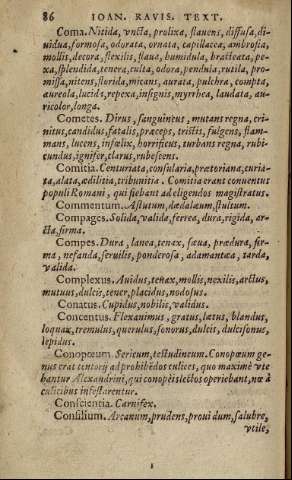 86 IOAN. RAVIS. TEXT.
Coma. Nitida, vncta, prolixa, flauens, diffusa, di-
uidua, formosa, odorata, ornata, capillacea, ambrosia,
mollis, decora, flexilis, flaua, humidula, bracteata, pe-
xa, splendida, tenera, culta, odora, pendula, rutila, pro-
missa, nitens, florida, micans, aurata, pulchra, compta,
aureola, lucida, repexa, insignis, myrrhea, laudata, au-
ricolor, longa.
Cometes. Dirus, sanguineus, mutans regna, cri-
nitus, candidus, fatalis, præceps, tristis, fulgens, flam-
mans, lucens, infælix, horrificus, turbans regna, rubi-
cundus, ignifer, clarus, rubescens.
Comitia. Centuriata, consularia, prætoriana, curia-
ta, alata, ædilitia, tribunitia. Comitia erant conuentus
populi Romani, qui fiebant ad eligendos magistratus.
Commentum. Astutum, dædalæum, stultum.
Compages. Solida, valida, ferrea, dura, rigida, ar-
cta, firma.
Compes. Dura, lanea, tenax, sæua, prædura, fir-
ma, nefanda, seruilis, ponderosa, adamantæa, tarda,
valida.
Complexus. Auidus, tenax, mollis, nexilis, arctus,
mutuus, dulcis, tener, placidus, nodosus.
Conatus. Cupidus, nobilis, validus.
Concentus. Flexanimus, gratus, lætus, blandus,
loquax, tremulus, querulus, sonorus, dulcis, dulcisonus,
lepidus.
Conopœum. Sericum, testudineum. Conopæum ge-
nus erat tentorij ad prohibēdos culices, quo maximè vte
bantur Alexandrini, qui conopèis lectos operiebant, ne à
culicibus infestarentur.
Conscientia. Carnifex.
Consilium. Arcanum, prudens, prouidum, salubre,
vtile,